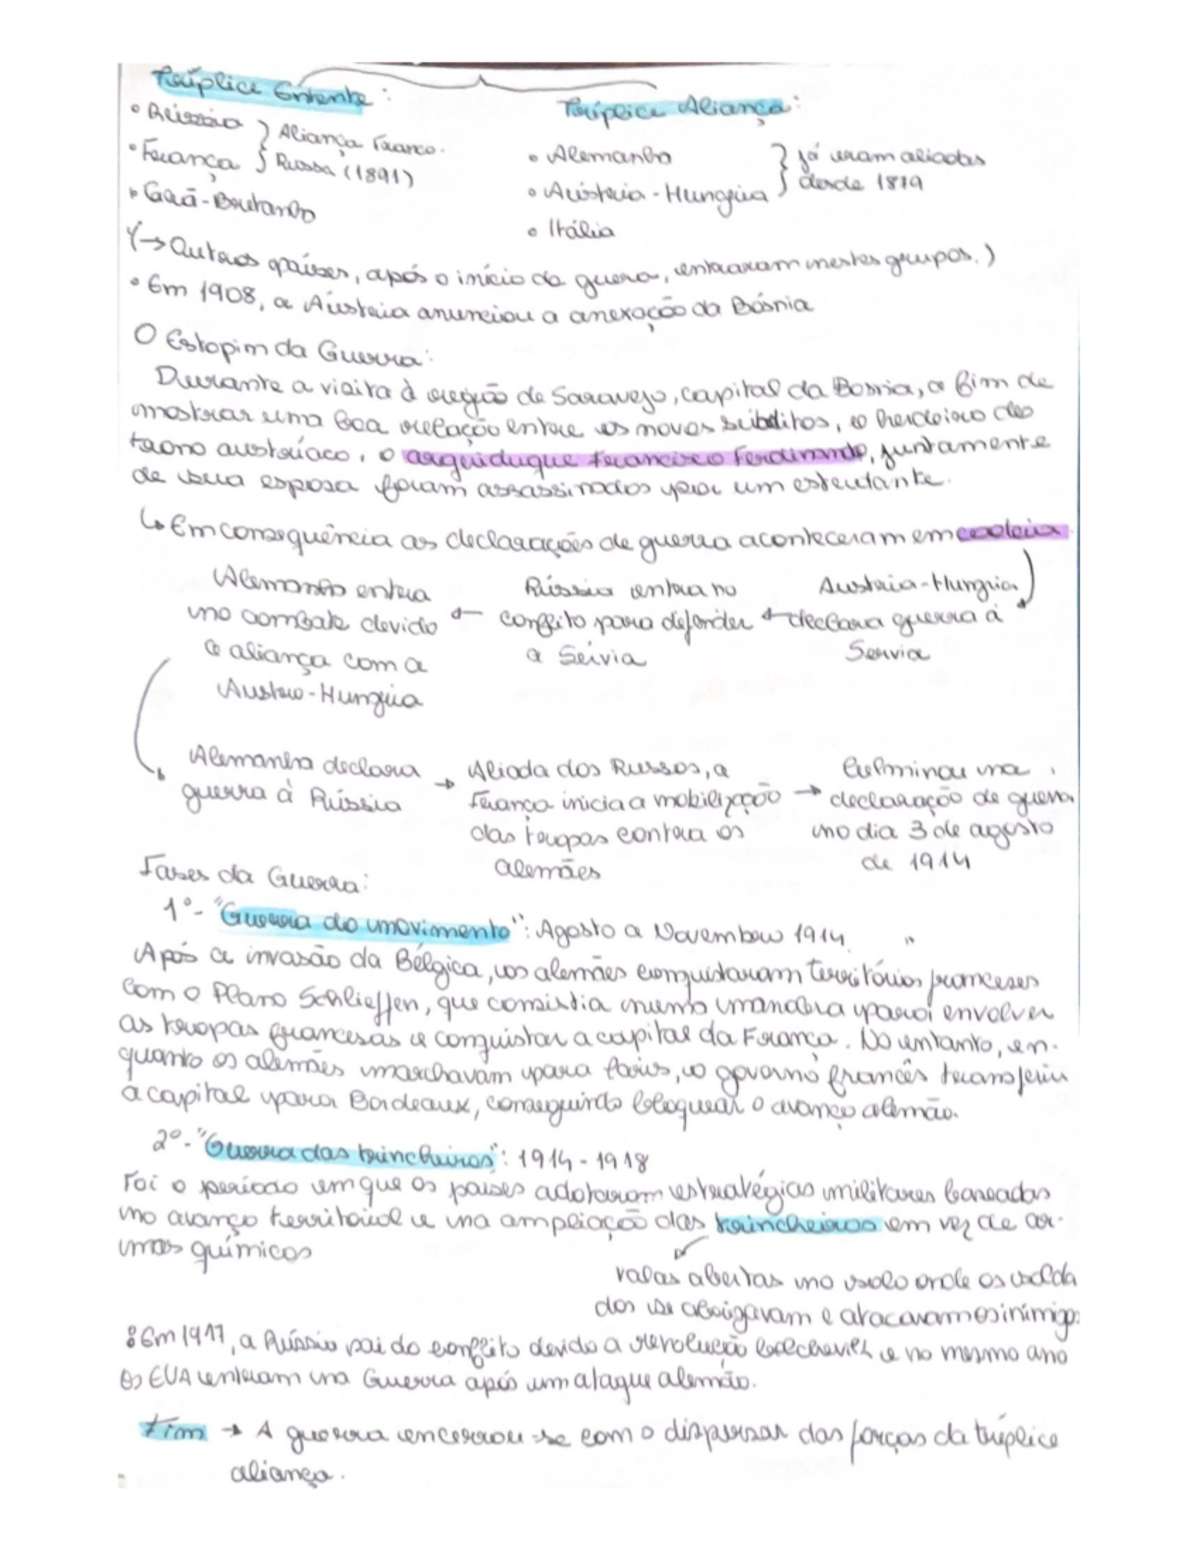 Tríplice Entente:
Tríplice Aliança:
• Rússia
• França
} Aliança Franco-
Russa (1891)
• Grã-Bretanha
• Alemanha
• Áustria-Hungria
} já eram aliadas
desde 1819
• Itália
(→ Outros países, após o início da guerra, entraram nestes grupos.)
• Em 1908, a Áustria anunciou a anexação da Bósnia
O Estopim da Guerra:
Durante a visita à região de Saravejo, capital da Bosnia, a fim de
mostrar uma boa relação entre os novos súbditos, o herdeiro do
trono austríaco, o arquiduque Francisco Ferdinando, juntamente
de sua esposa foram assassinados por um estudante.
↳ Em consequência as declarações de guerra aconteceram em cadeia
Alemanha entra
no combate devido
a aliança com a
Austro-Hungria
← Rússia entra no
conflito para defender
a Sérvia
← Austria-Hungria
declara guerra à
Servia
Alemanha declara
guerra à Rússia
→ Aliada dos Russos, a
França inicia a mobilização
das tropas contra os
alemães
→ Culminou na
declaração de guerra
no dia 3 de agosto
de 1914
Fases da Guerra:
1º- "Guerra do movimento": Agosto a Novembro 1914
Após a invasão da Bélgica, os alemães conquistaram territórios franceses
com o Plano Schlieffen, que consistia numa manobra para envolver
as tropas francesas e conquistar a capital da França. No entanto, en-
quanto os alemães marchavam para Paris, o governo francês transferiu
a capital para Bordeaux, conseguindo bloquear o avanço alemão.
2º- "Guerra das trincheiras": 1914-1918
Foi o período em que os países adotaram estratégias militares baseadas
no avanço territorial e na ampliação das trincheiras em vez de ar-
mas químicas
valas abertas no solo onde os solda
dos se abrigavam e atacavam os inimigos
: Em 1917, a Rússia sai do conflito devido a revolução bolchevik e no mesmo ano
Os EUA entram na Guerra após um ataque alemão.
Fim → A guerra encerrou-se com o dispersar das forças da tríplice
aliança.